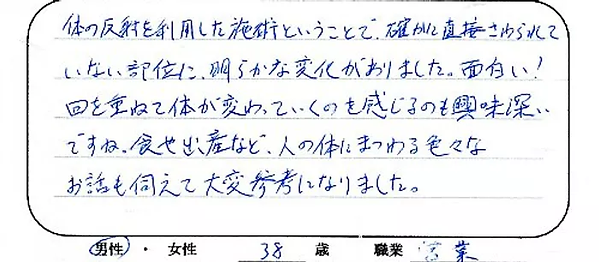 体の反射を利用した施術ということで、確かに直接さわられて
いない部位に、明らかな変化がありました。面白い!
回を重ねて体が変わっていくのを感じるのも興味深い
ですね。食や出産など、人の体にまつわる色々な
お話も伺えて大変参考になりました。
男性・女性 38歳 職業 営業